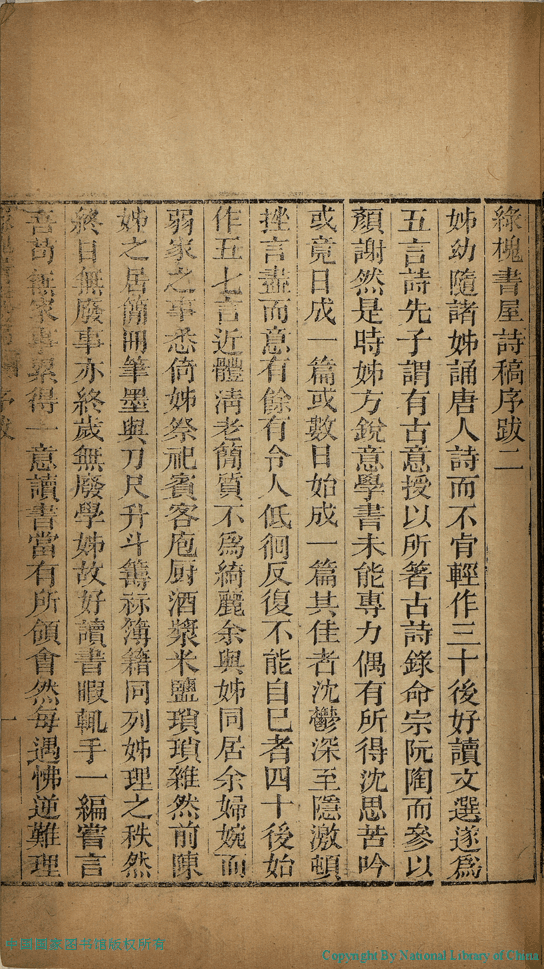 綠槐書屋詩稿序跋二
姊幼隨諸姊誦唐人詩而不肎輕作三十後好讀文選遂爲
五言詩先子謂有古意授以所箸古詩錄命宗阮陶而參以
顏謝然是時姊方銳意學書未能專力偶有所得沈思苦吟
或竟日成一篇或數日始成一篇其佳者沈鬱深至隱激頓
挫言盡而意有餘有令人低徊反復不能自已者四十後始
作五七言近體淸老簡質不爲綺麗余與姊同居余婦婉而
弱家之事悉倚姊祭祀賓客庖厨酒漿米鹽瑣瑣雜然前陳
姊之居簡冊筆墨與刀尺升斗籌祘簿籍同列姊理之秩然
終日無廢事亦終歲無廢學姊故好讀書暇輒手一編嘗言
吾苟無家事累得一意讀書當有所領會然每遇怫逆難理
序跋
一
中国国家图书馆版权所有
Copyright By National Library of China